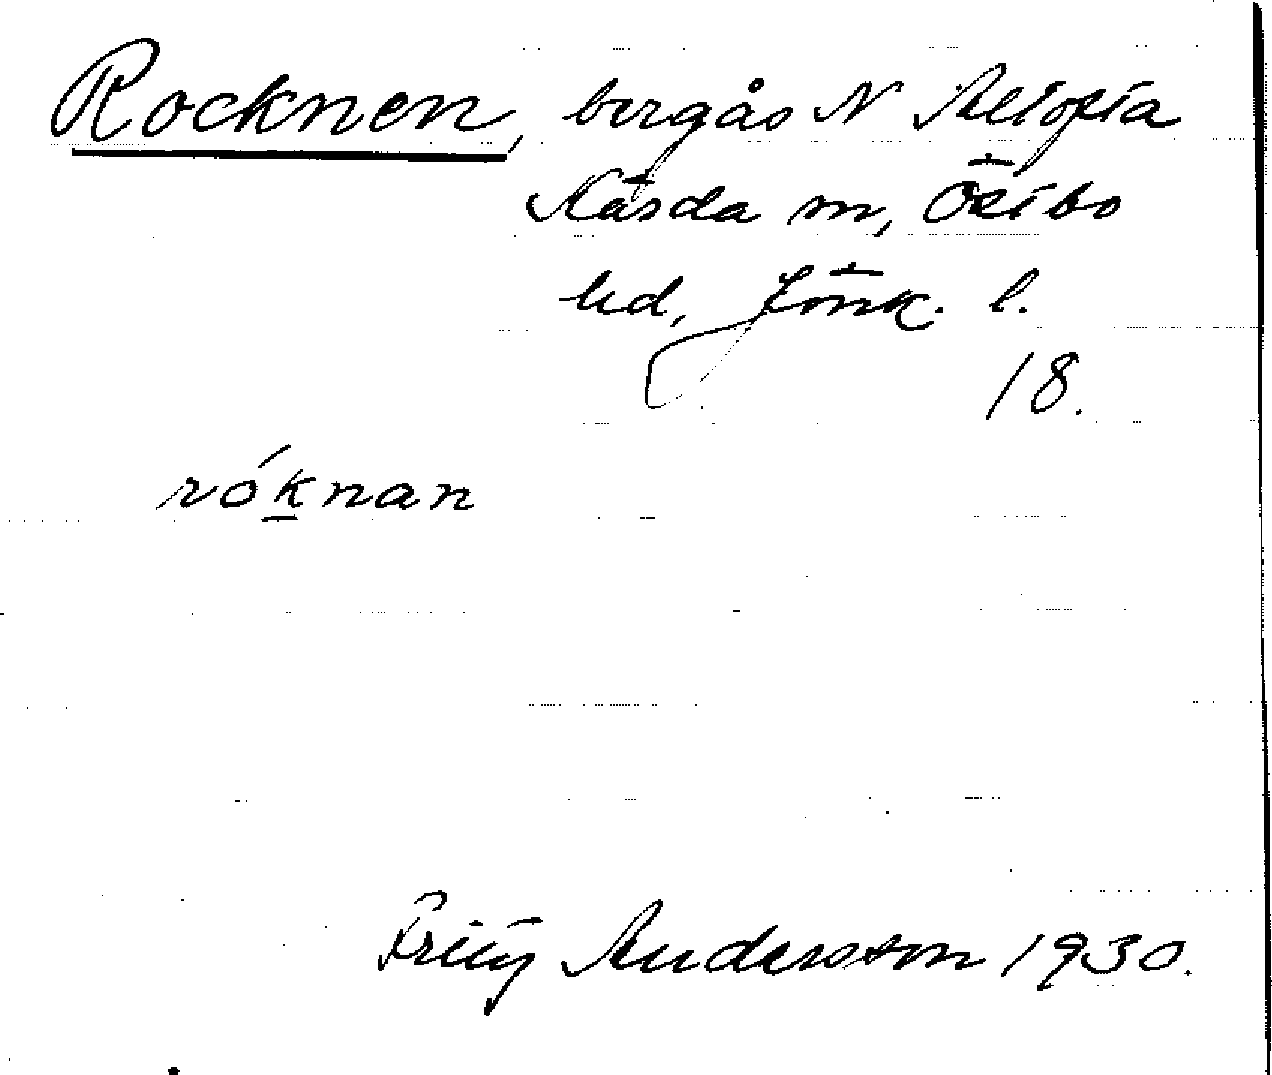 Rocknen, bergås N Altofta
Nåsda m, Östbo
hd, Jönk. l.
18.
róknan
Andersson 1930.